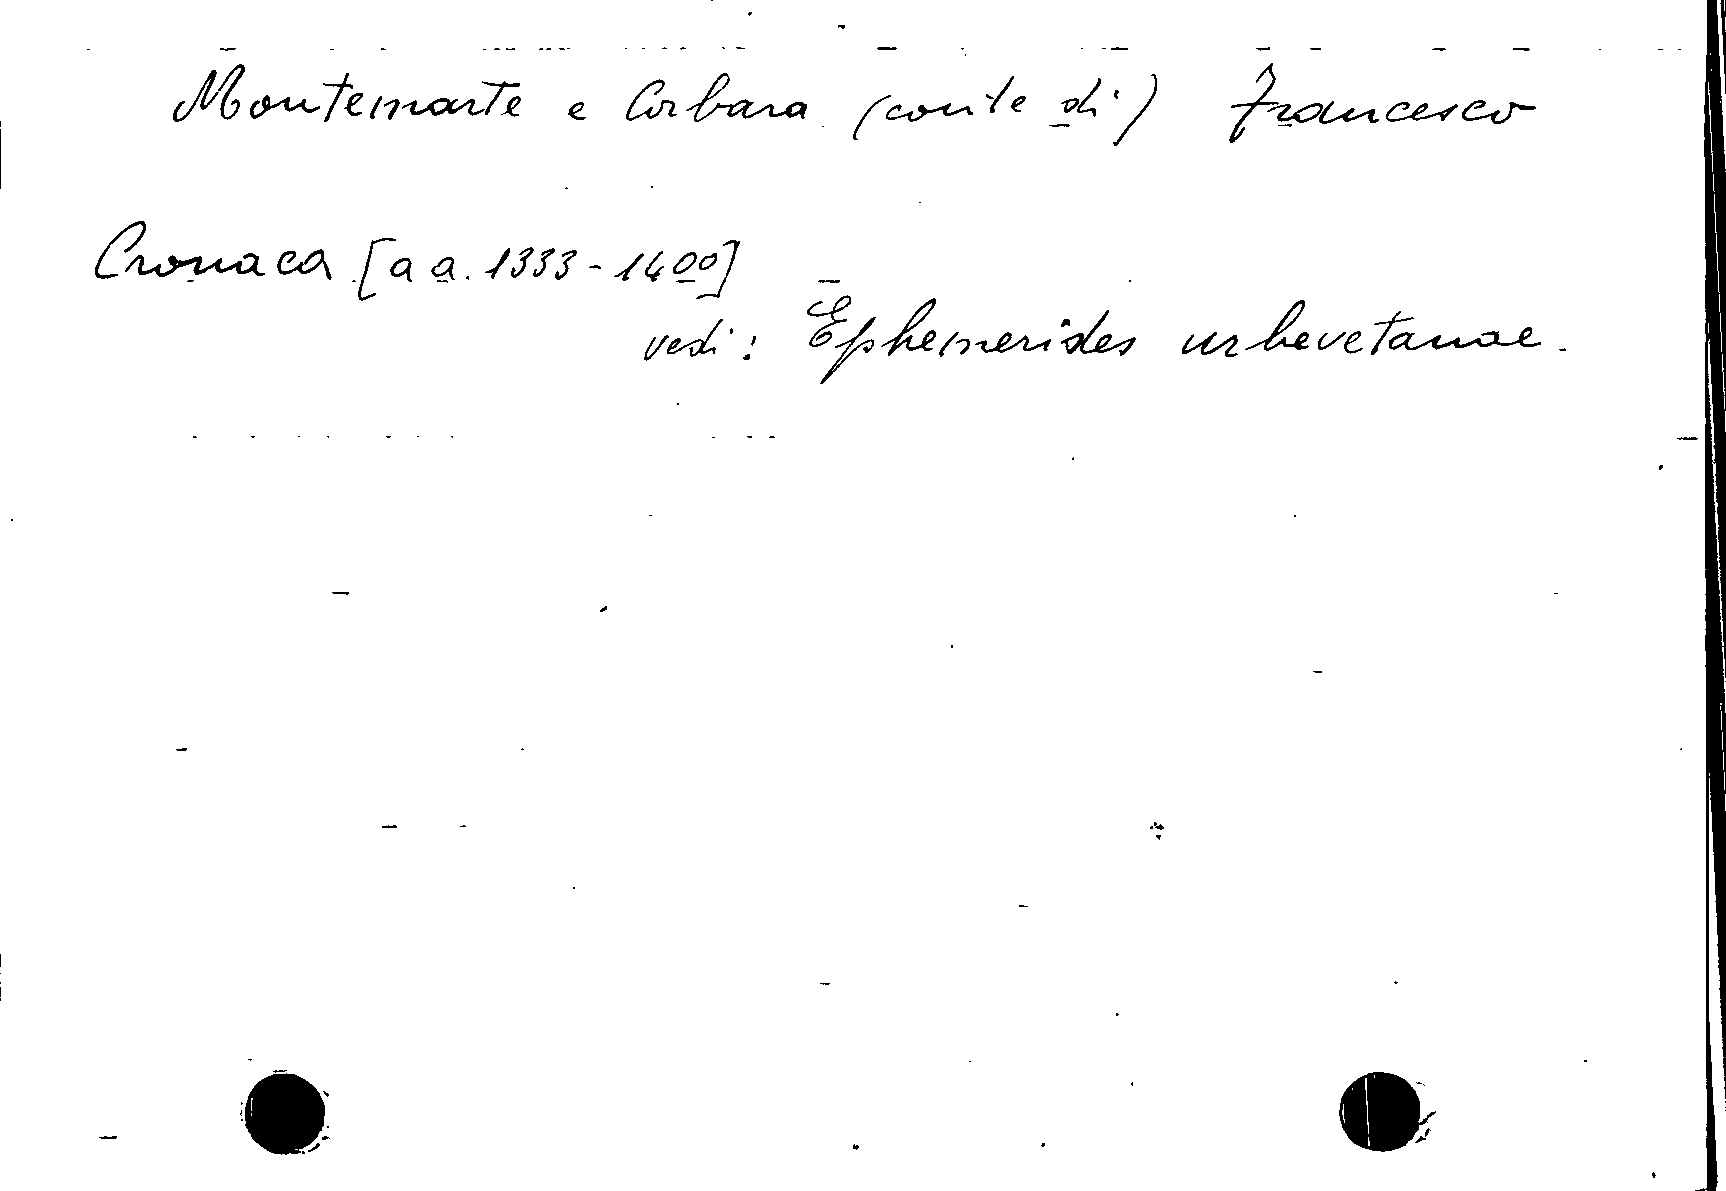 Montemarte e Corbara (conte di) Francesco
Cronaca [aa. 1333-1400]
vedi: Ephemerides urbevetanae.